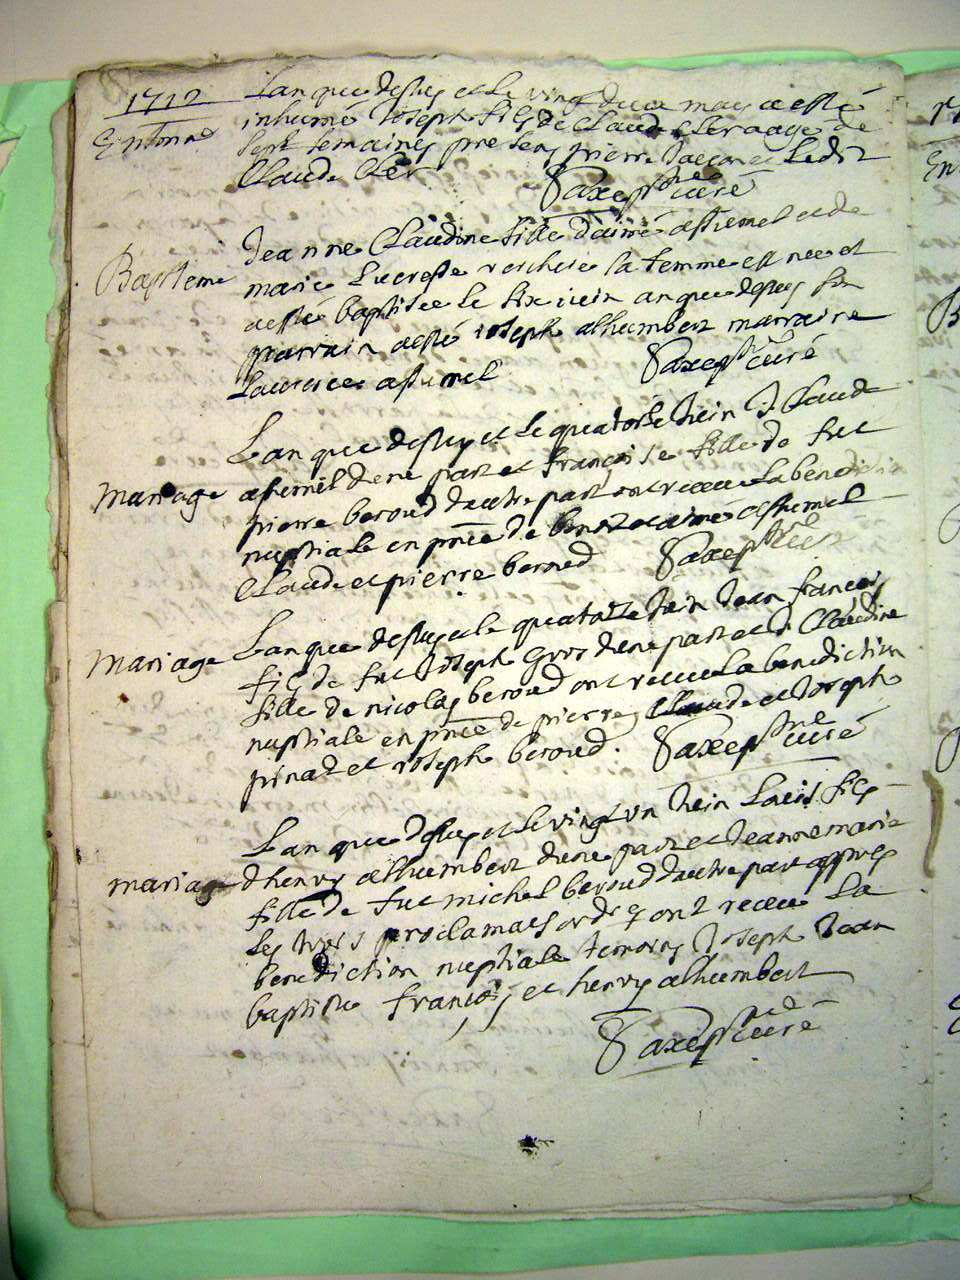 1712
Enterré
Lan que dessus et le vingt deux may a esté
inhumé Joseph fils de Claude Cler aagé de
sept semaines presens pierre Jacques Ledit
Claude Cler
Saxe ptre curé
Bapteme
Jeanne Claudine fille d'aimé asthemel et de
marie Lucresse verchere sa femme est nee et
a esté baptisee le six iuin an que dessus son
parrain a esté ioseph alhumbert marraine
Laurence asthemel
Saxe ptre curé
mariage
Lan que dessus et le quatorse Juin Claude
asthemel dune part et françoise fille de fut
pierre beroud dautre part ont receu la benediction
nuptiale en pnce de benoit et aimé asthemel
Claude et pierre beroud
Saxe ptre curé
mariage
Lan que dessus et le quatorse Juin Jean françois
fils de fut Joseph Gros dune part et Claudine
fille de nicolas beroud ont receu la benediction
nuptiale en pnce de pierre, Claude et Joseph
pinat et ioseph beroud.
Saxe ptre curé
mariage
Lan que dessus et le vingt un Juin Louis fils
dhenry alhumbert dune part et Jeanne marie
fille de fut michel beroud dautre part appres
les trois proclamaõs ordres ont receu la
benediction nuptiale temoins Joseph Jean
baptiste françois et henry alhumbert
Saxe ptre curé